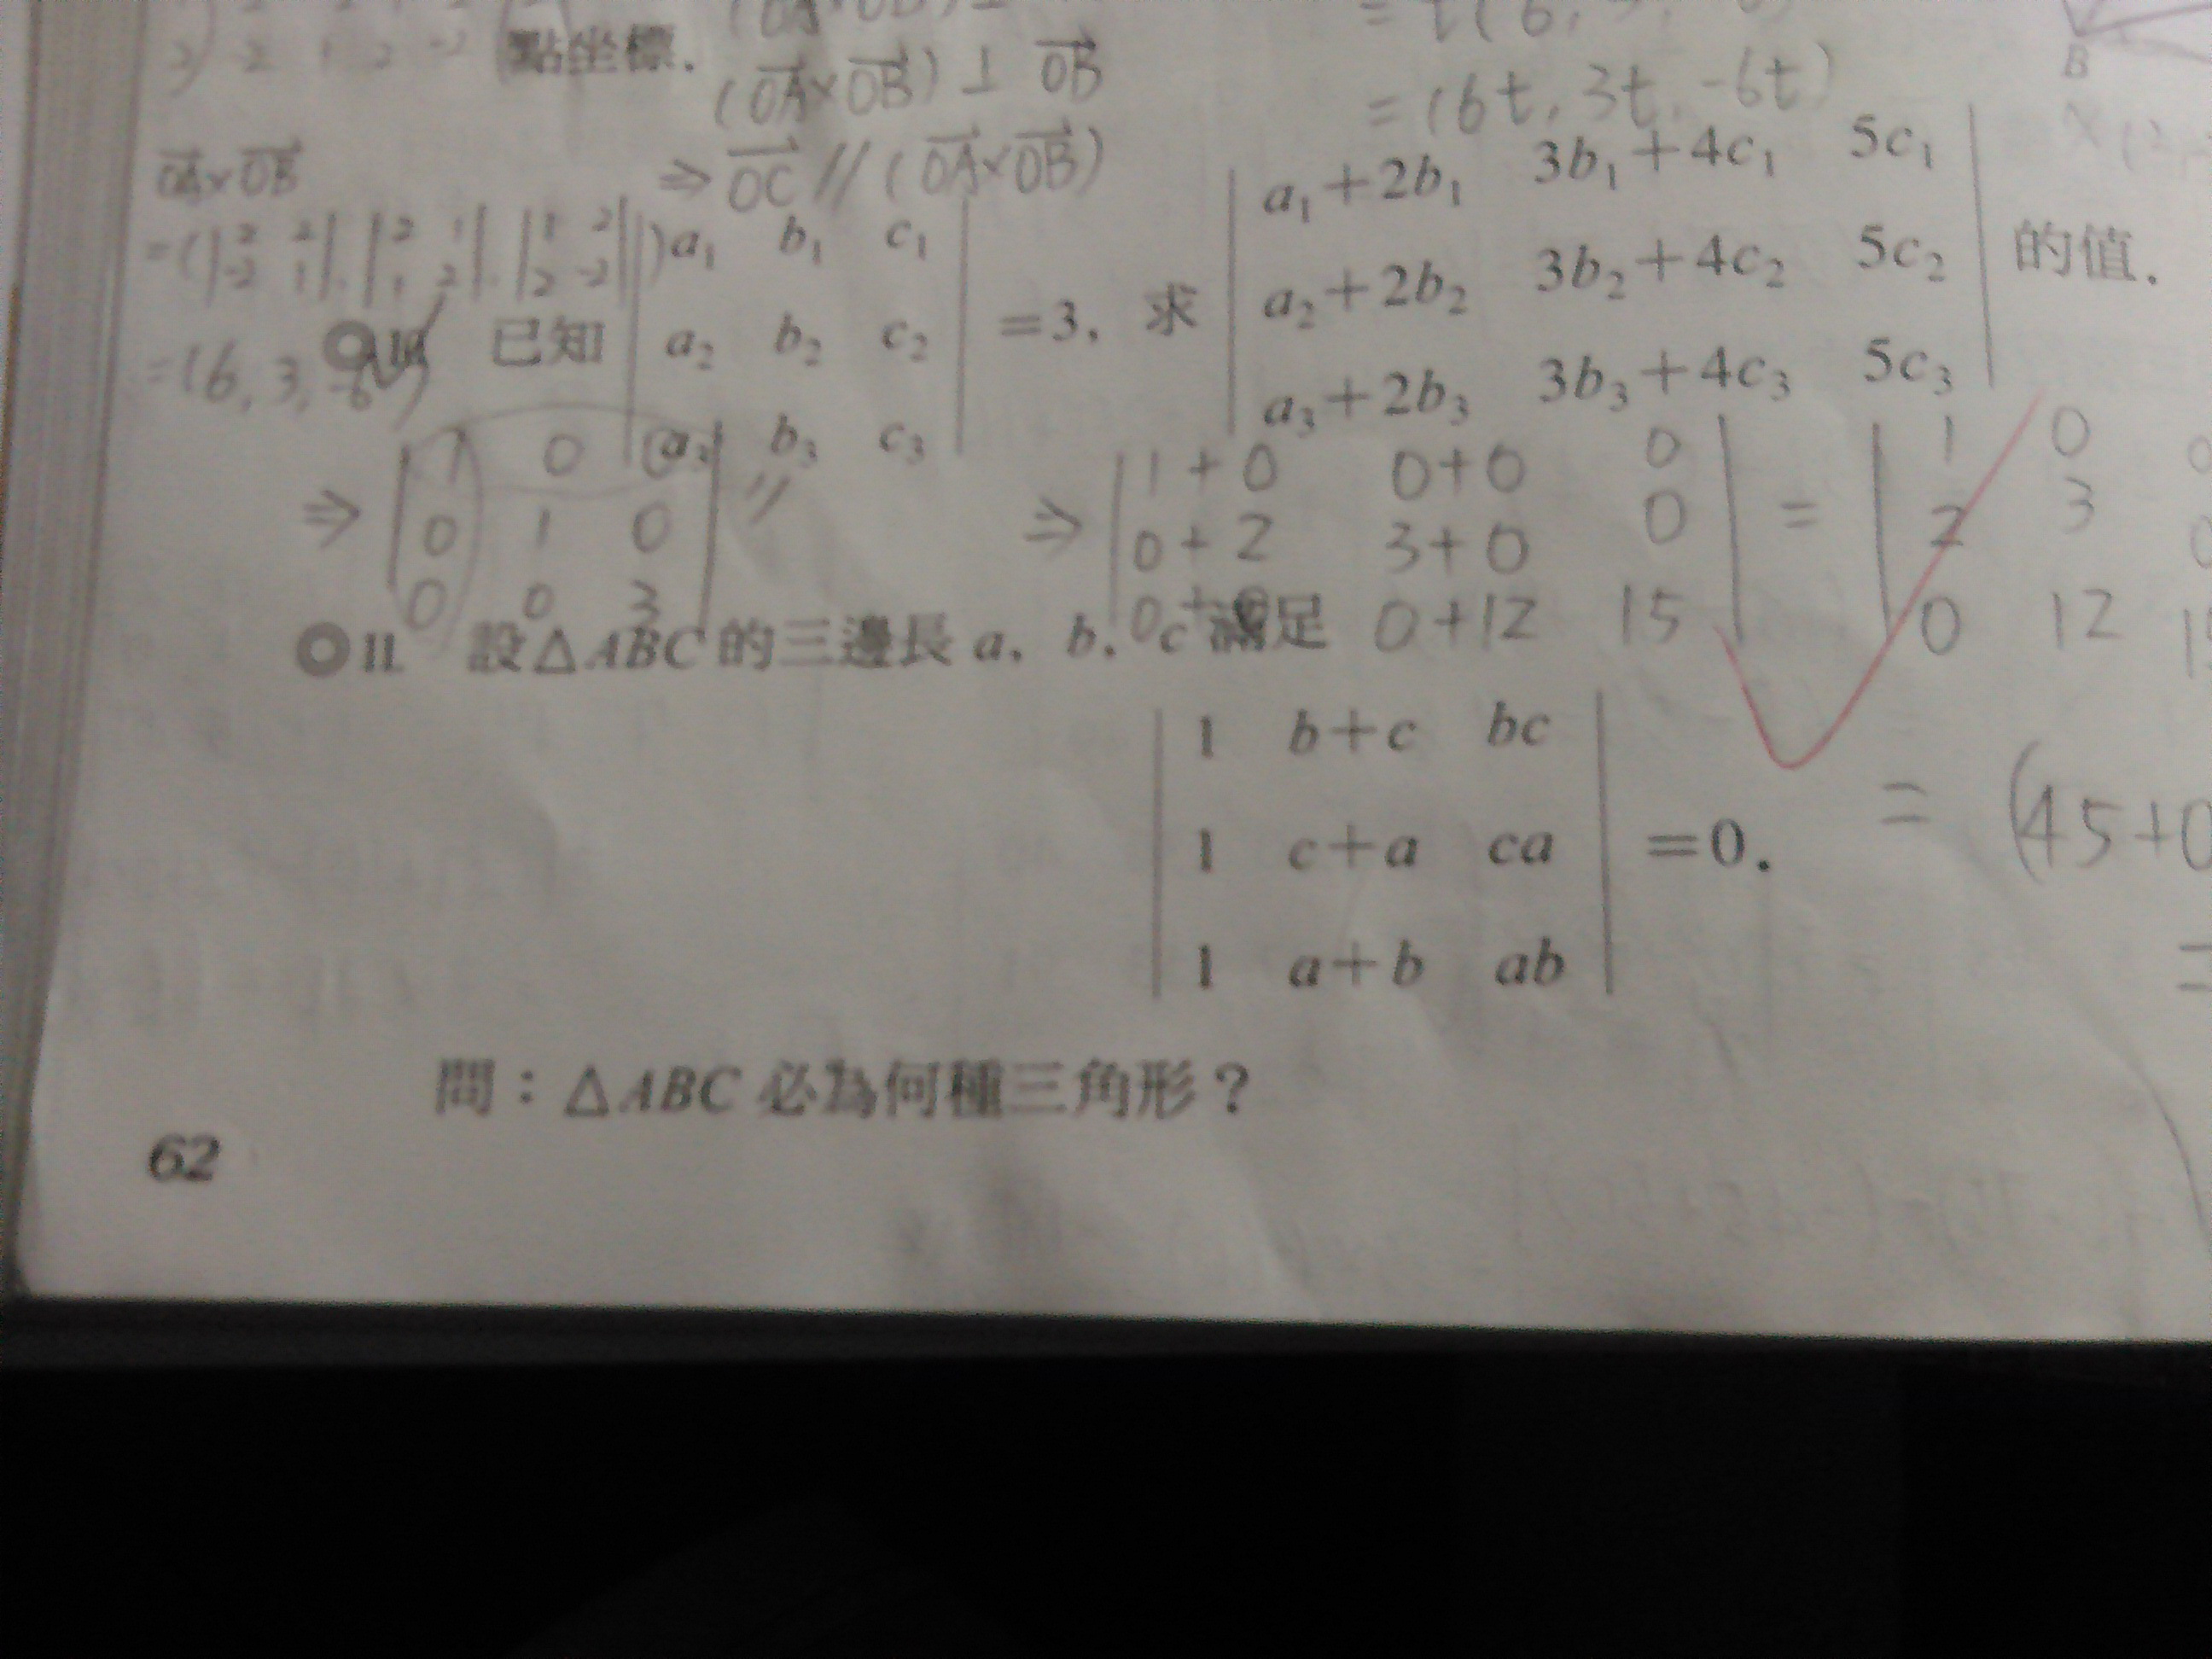 點坐標.
(OA×OB) ⊥ OB
= (6t, 3t, -6t)
B
OA×OB
⇒ OC // (OA×OB)
=(|2 2| |2 1| |1 2|)
|-2 1| |1 2| |2 -2|
= (6, 3, -6)
已知 | a₁ b₁ c₁ |
| a₂ b₂ c₂ | =3, 求
| a₃ b₃ c₃ |
| a₁+2b₁ 3b₁+4c₁ 5c₁ |
| a₂+2b₂ 3b₂+4c₂ 5c₂ | 的值.
| a₃+2b₃ 3b₃+4c₃ 5c₃ |
⇒ | 1 0 0 |
| 0 1 0 |
| 0 0 3 |
⇒ | 1+0 0+0 0 | = | 1 0 0
| 0+2 3+0 0 | | 2 3 0
| 0+0 0+12 15 | | 0 12 15
= (45+0
=
◎11. 設△ABC的三邊長 a, b, c 滿足
| 1 b+c bc |
| 1 c+a ca | =0.
| 1 a+b ab |
問：△ABC 必為何種三角形？
62